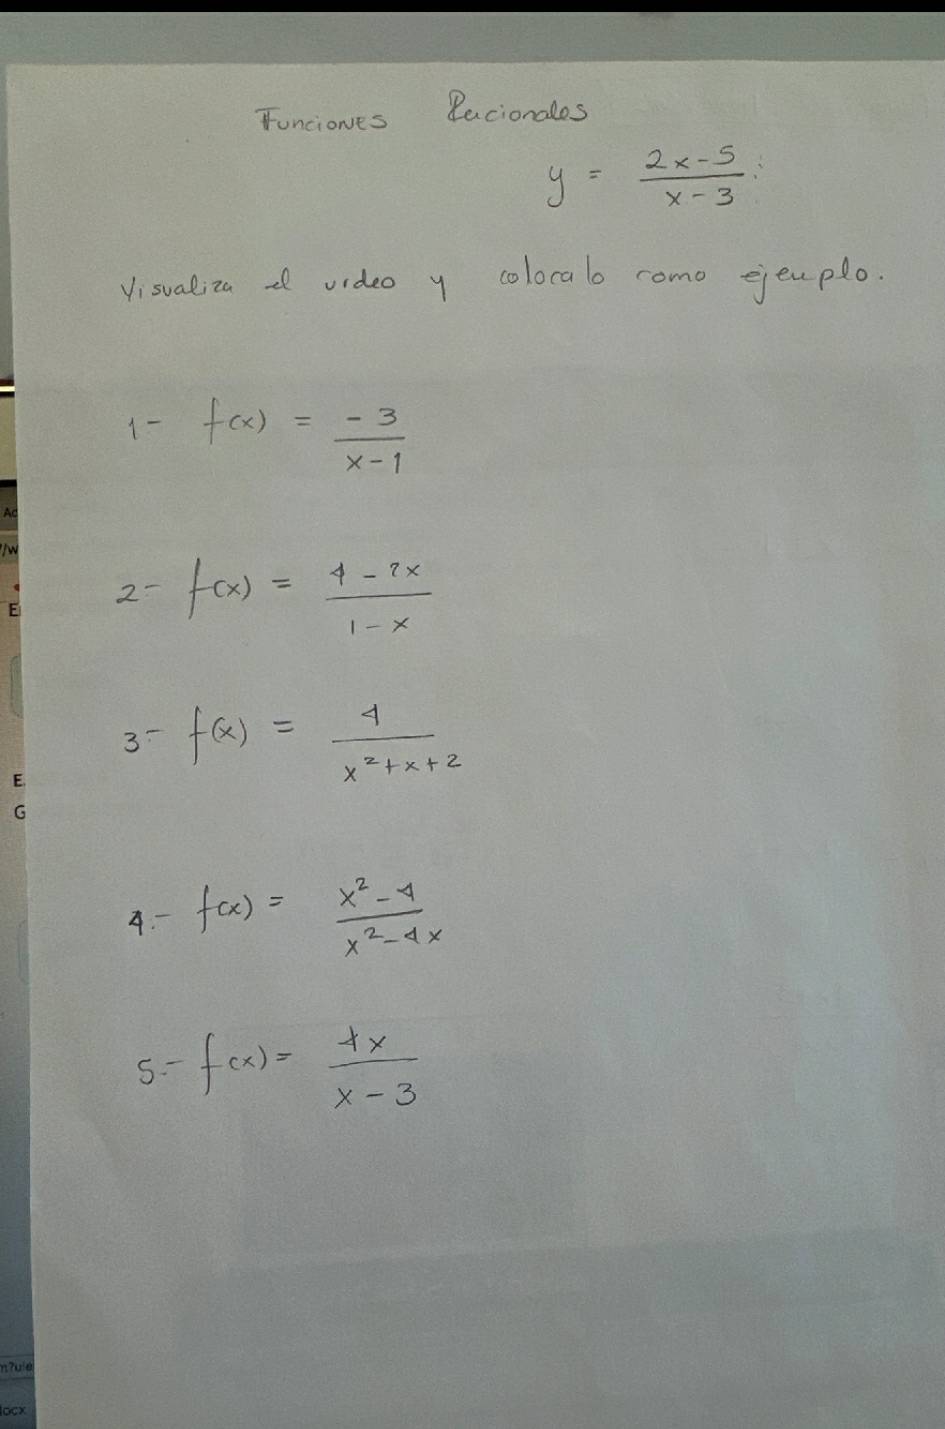 Funciones Racionales
y = \frac{2x-5}{x-3}:
Visualiza el video y colocalo como ejemplo.
1- f(x) = \frac{-3}{x-1}
2- f(x) = \frac{4-2x}{1-x}
3- f(x) = \frac{4}{x^2+x+2}
4.- f(x) = \frac{x^2-4}{x^2-4x}
5.- f(x) = \frac{4x}{x-3}